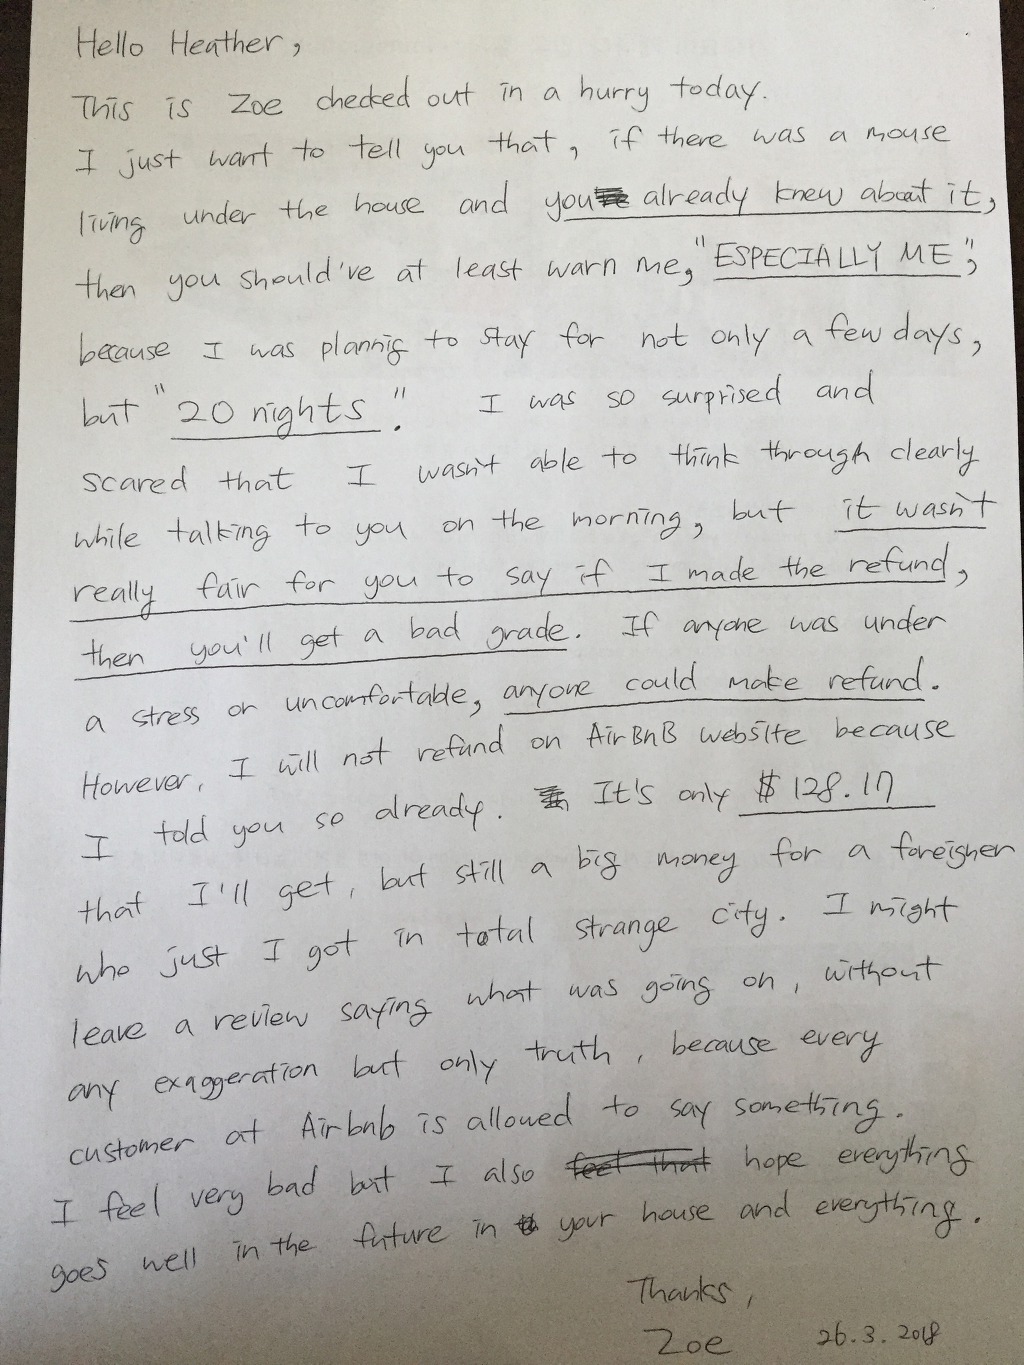 Hello Heather,
This is Zoe checked out in a hurry today.
I just want to tell you that, if there was a mouse
living under the house and you already knew about it,
then you should've at least warn me, "ESPECIALLY ME",
because I was plannig to stay for not only a few days,
but "20 nights".  I was so surprised and
scared that I wasn't able to think through clearly
while talking to you on the morning, but it wasn't
really fair for you to say if I made the refund,
then you'll get a bad grade. If anyone was under
a stress or uncomfortable, anyone could make refund.
However, I will not refund on AirBnB website because
I told you so already. It's only $128.17
that I'll get, but still a big money for a foreigner
who just I got in total strange city. I might
leave a review saying what was going on, without
any exaggeration but only truth, because every
customer at Airbnb is allowed to say something.
I feel very bad but I also hope everything
goes well in the future in your house and everything.
Thanks,
Zoe 26.3.2018